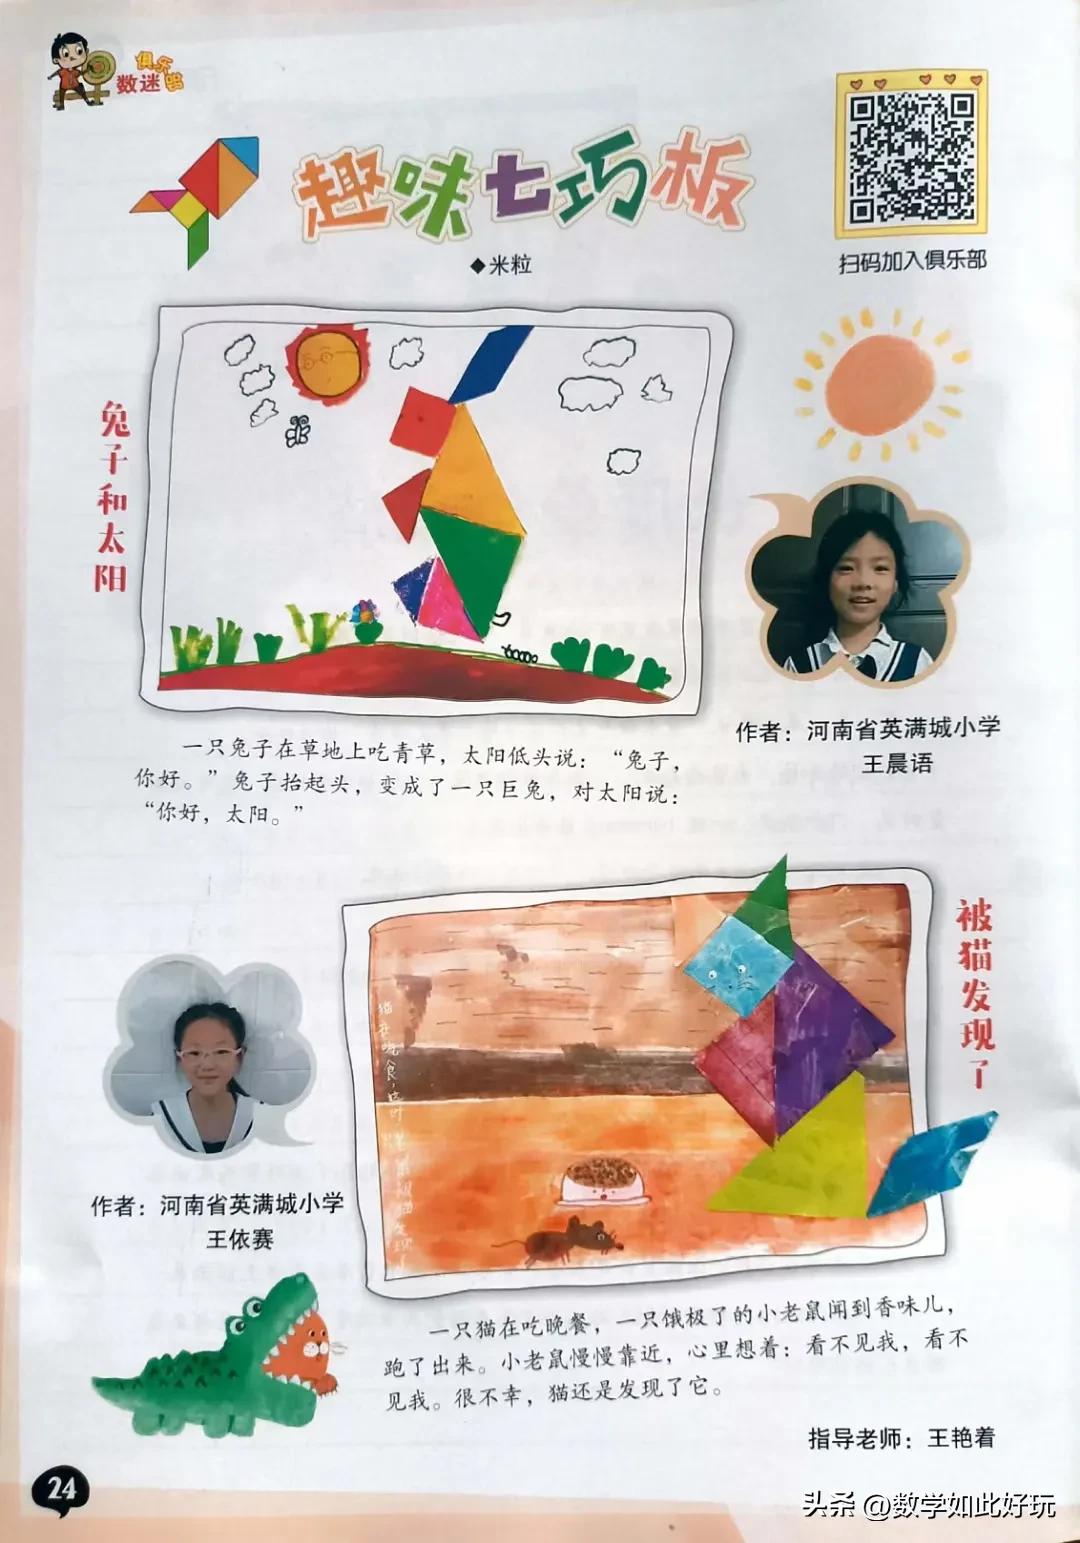 俱乐部
数迷
趣味七巧板
◆米粒
扫码加入俱乐部
兔子和太阳
作者：河南省英满城小学
王晨语
一只兔子在草地上吃青草，太阳低头说：“兔子，
你好。”兔子抬起头，变成了一只巨兔，对太阳说：
“你好，太阳。”
被猫发现了
猫在吃食，
作者：河南省英满城小学
王依赛
一只猫在吃晚餐，一只饿极了的小老鼠闻到香味儿，
跑了出来。小老鼠慢慢靠近，心里想着：看不见我，看不
见我。很不幸，猫还是发现了它。
指导老师：王艳着
24
头条 @数学如此好玩